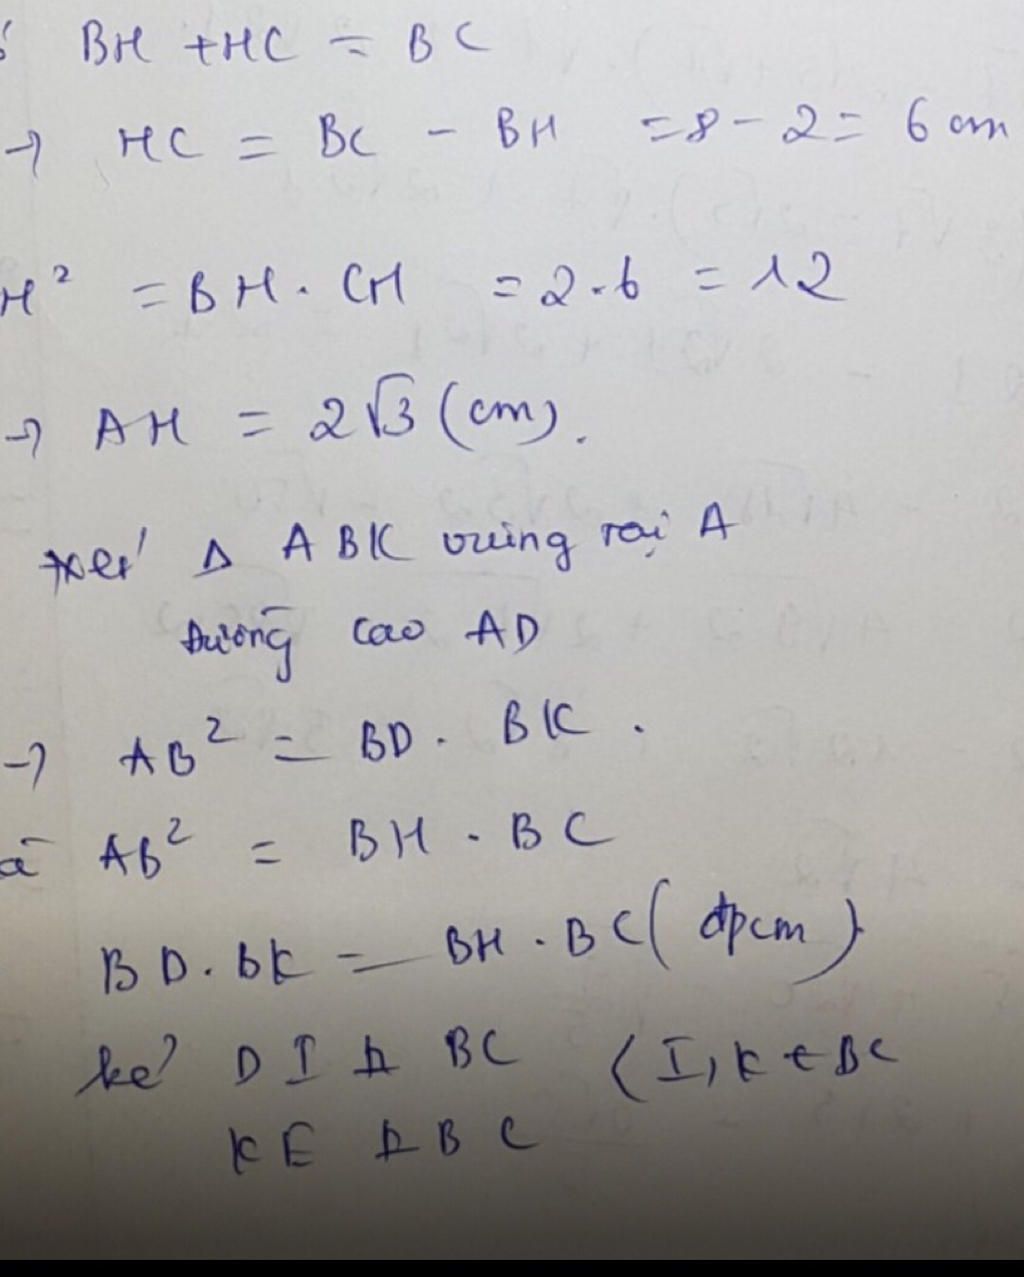 BH + HC = BC
→ HC = BC - BH = 8 - 2 = 6 cm
H² = BH . CH = 2 . 6 = 12
→ AH = 2√3 (cm).
xét Δ ABK vuông tại A
Đường cao AD
→ AB² = BD . BK .
à AB² = BH . BC
BD . BK = BH . BC ( đpcm )
kẻ DI ⊥ BC ( I, K ∈ BC
KE ⊥ BC